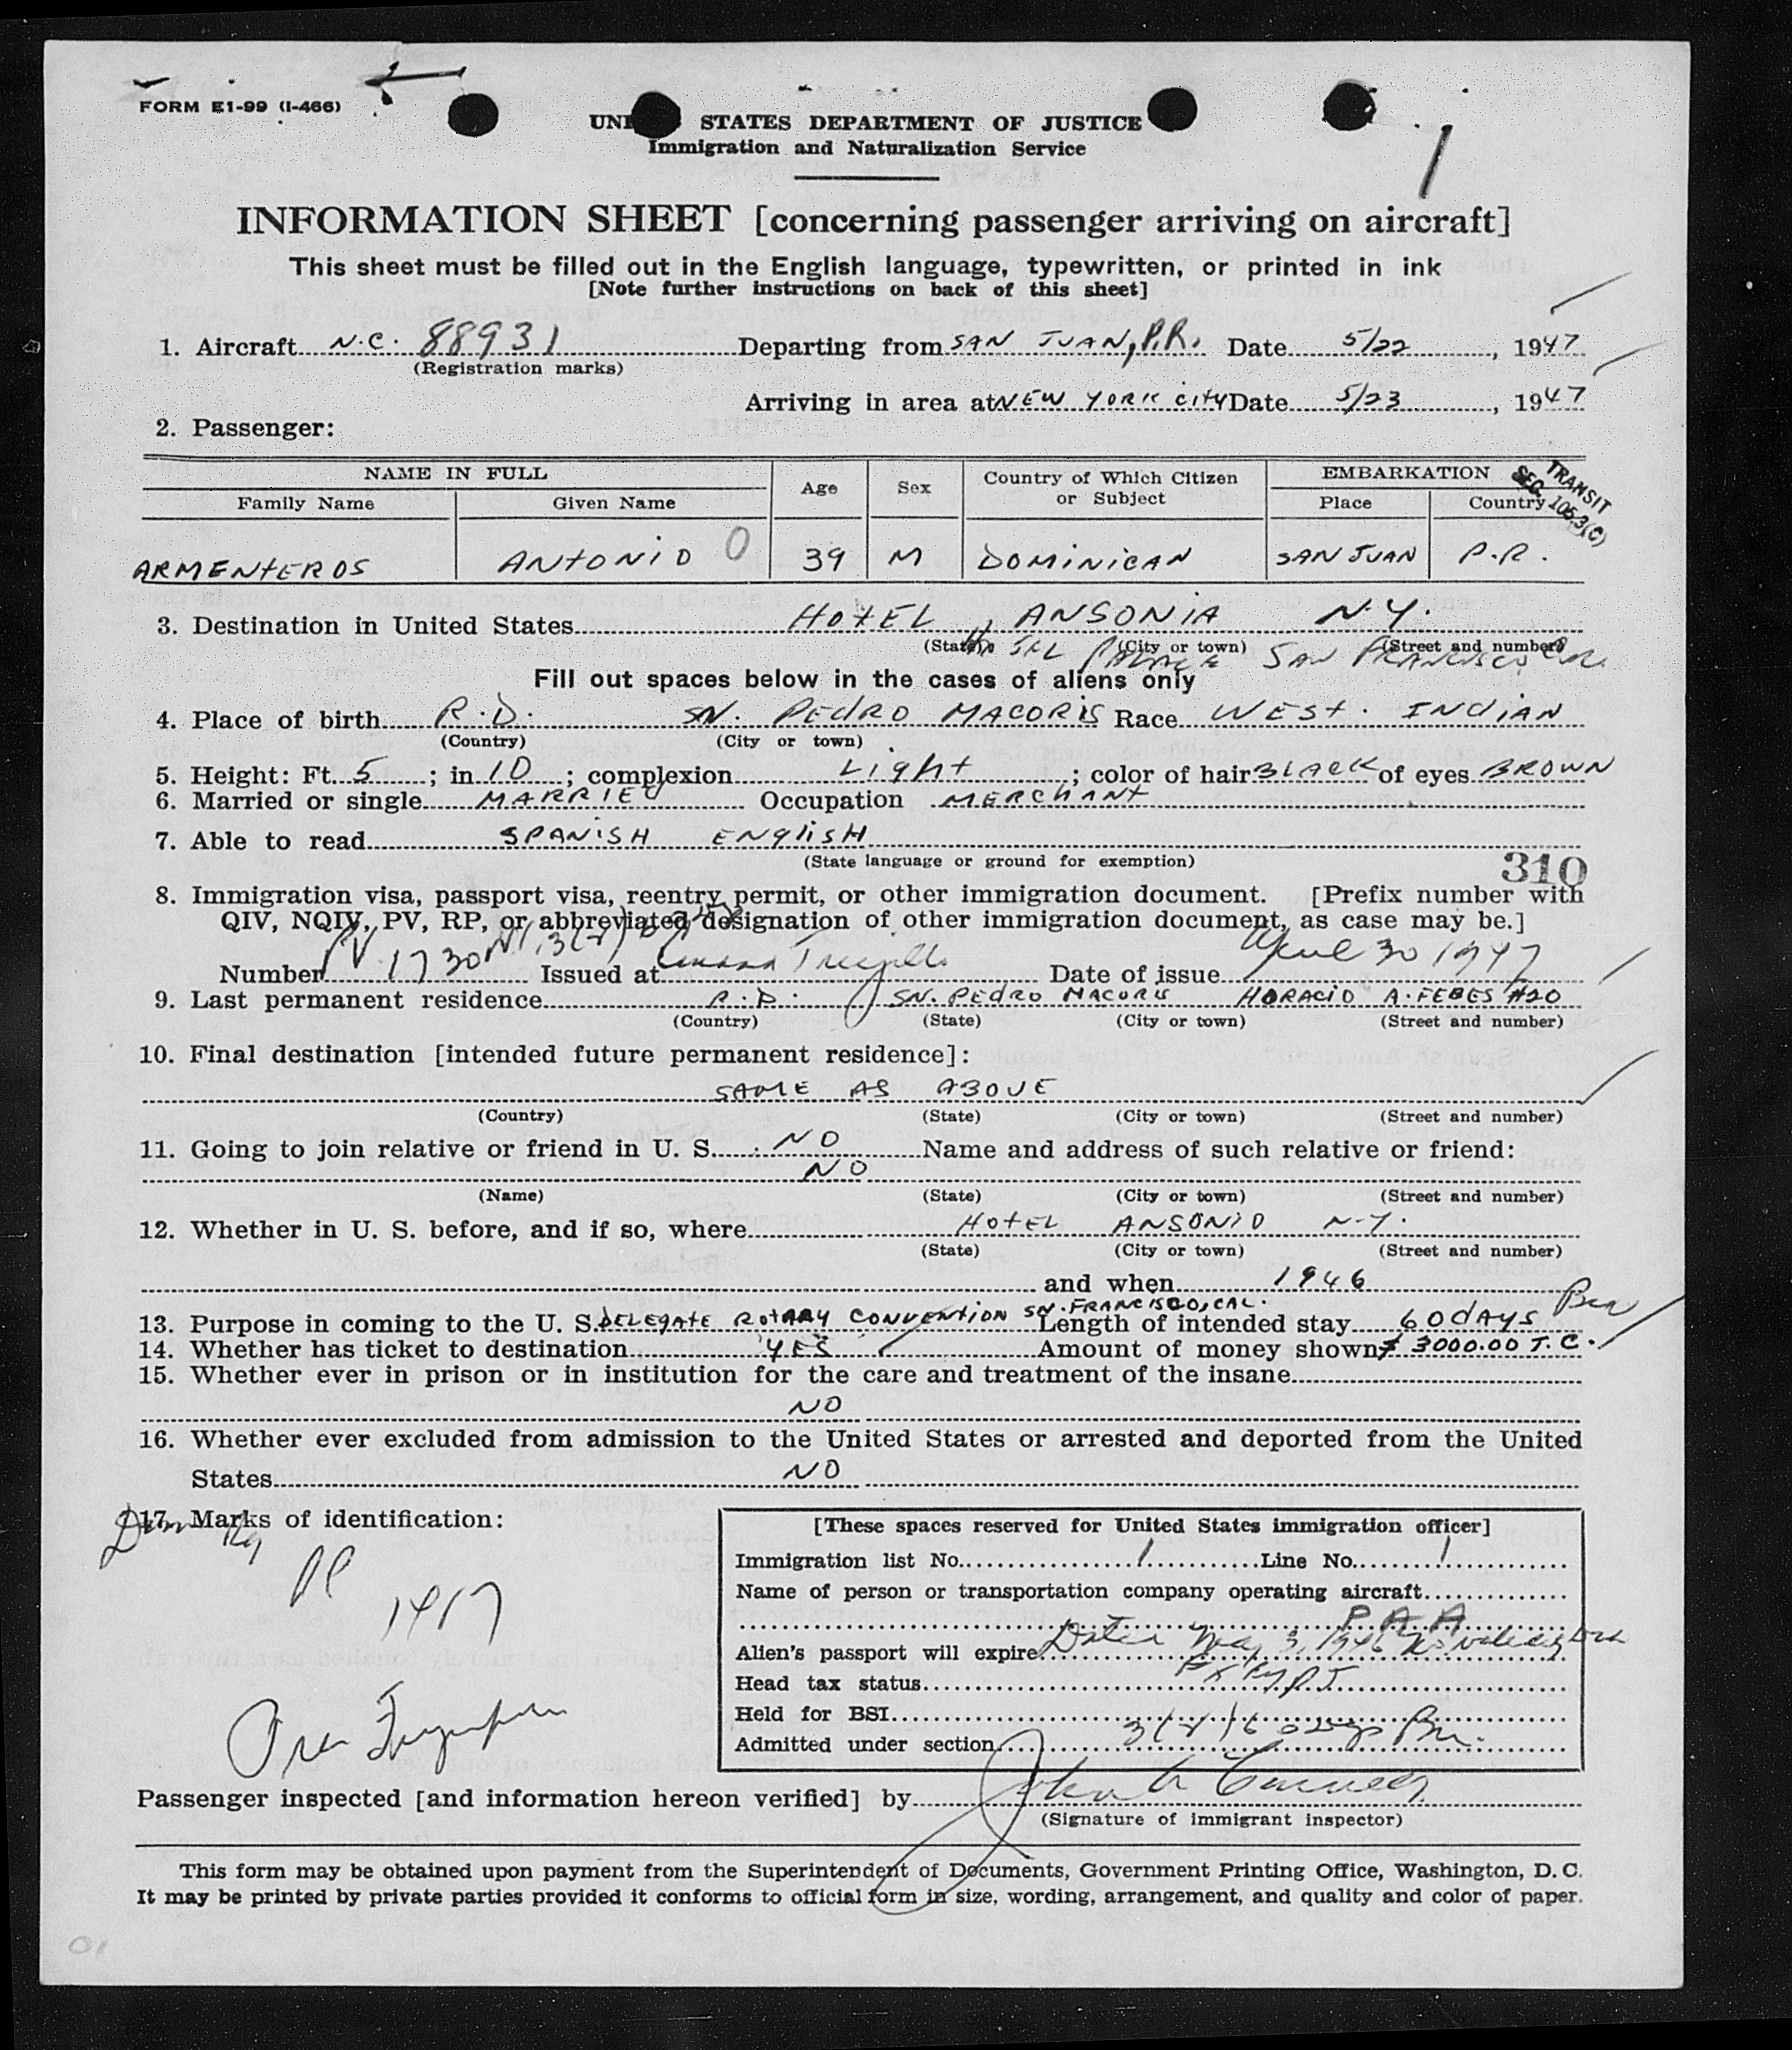 FORM E1-99 (I-466)
UNI STATES DEPARTMENT OF JUSTICE
Immigration and Naturalization Service
1
INFORMATION SHEET [concerning passenger arriving on aircraft]
This sheet must be filled out in the English language, typewritten, or printed in ink
[Note further instructions on back of this sheet]
1. Aircraft N.C. 88931 Departing from SAN JUAN, P.R. Date 5/22, 1947
(Registration marks)
Arriving in area at NEW YORK CITY Date 5/23, 1947
2. Passenger:
NAME IN FULL Age Sex Country of Which Citizen or Subject EMBARKATION
Family Name Given Name Place Country
TRANSIT
SEC. 105.3(C)
ARMENTEROS ANTONIO O 39 M DOMINICAN SAN JUAN P.R.
3. Destination in United States HOTEL, ANSONIA N.Y.
(State) (City or town) (Street and number)
PALACE SAN FRANCISCO
Fill out spaces below in the cases of aliens only
4. Place of birth R.D. SN. PEDRO MACORIS Race WEST. INDIAN
(Country) (City or town)
5. Height: Ft. 5; in 10; complexion Light; color of hair BLACK of eyes BROWN
6. Married or single MARRIED Occupation MERCHANT
7. Able to read SPANISH ENGLISH
(State language or ground for exemption)
310
8. Immigration visa, passport visa, reentry permit, or other immigration document. [Prefix number with
QIV, NQIV, PV, RP, or abbreviated designation of other immigration document, as case may be.]
Number PV 1730 Issued at Ciudad Trujillo Date of issue April 30 1947
9. Last permanent residence R.D. SN. PEDRO MACORIS HORACIO A. FEBES #20
(Country) (State) (City or town) (Street and number)
10. Final destination [intended future permanent residence]:
SAME AS ABOVE
(Country) (State) (City or town) (Street and number)
11. Going to join relative or friend in U. S. NO Name and address of such relative or friend:
NO
(Name) (State) (City or town) (Street and number)
12. Whether in U. S. before, and if so, where HOTEL ANSONIO N-Y.
(State) (City or town) (Street and number)
and when 1946
13. Purpose in coming to the U. S. DELEGATE ROTARY CONVENTION SN. FRANCISCO, CAL. Length of intended stay 60 DAYS
14. Whether has ticket to destination YES Amount of money shown $ 3000.00 T.C.
15. Whether ever in prison or in institution for the care and treatment of the insane
NO
16. Whether ever excluded from admission to the United States or arrested and deported from the United
States NO
17. Marks of identification:
1417
[These spaces reserved for United States immigration officer]
Immigration list No. 1 Line No. 1
Name of person or transportation company operating aircraft
P A A
Alien's passport will expire Dated May 3, 1946
Head tax status
Held for BSI
Admitted under section 3(2)
Passenger inspected [and information hereon verified] by
(Signature of immigrant inspector)
This form may be obtained upon payment from the Superintendent of Documents, Government Printing Office, Washington, D. C.
It may be printed by private parties provided it conforms to official form in size, wording, arrangement, and quality and color of paper.